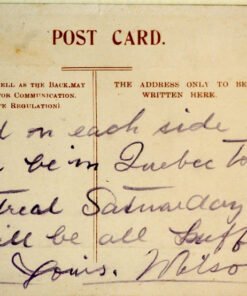 POST CARD.
ELL AS THE BACK, MAY
FOR COMMUNICATION.
E REGULATION)
THE ADDRESS ONLY TO BE
WRITTEN HERE.
d on each side
be in Quebec to
treal Saturday
ill be all
Yours. Watso